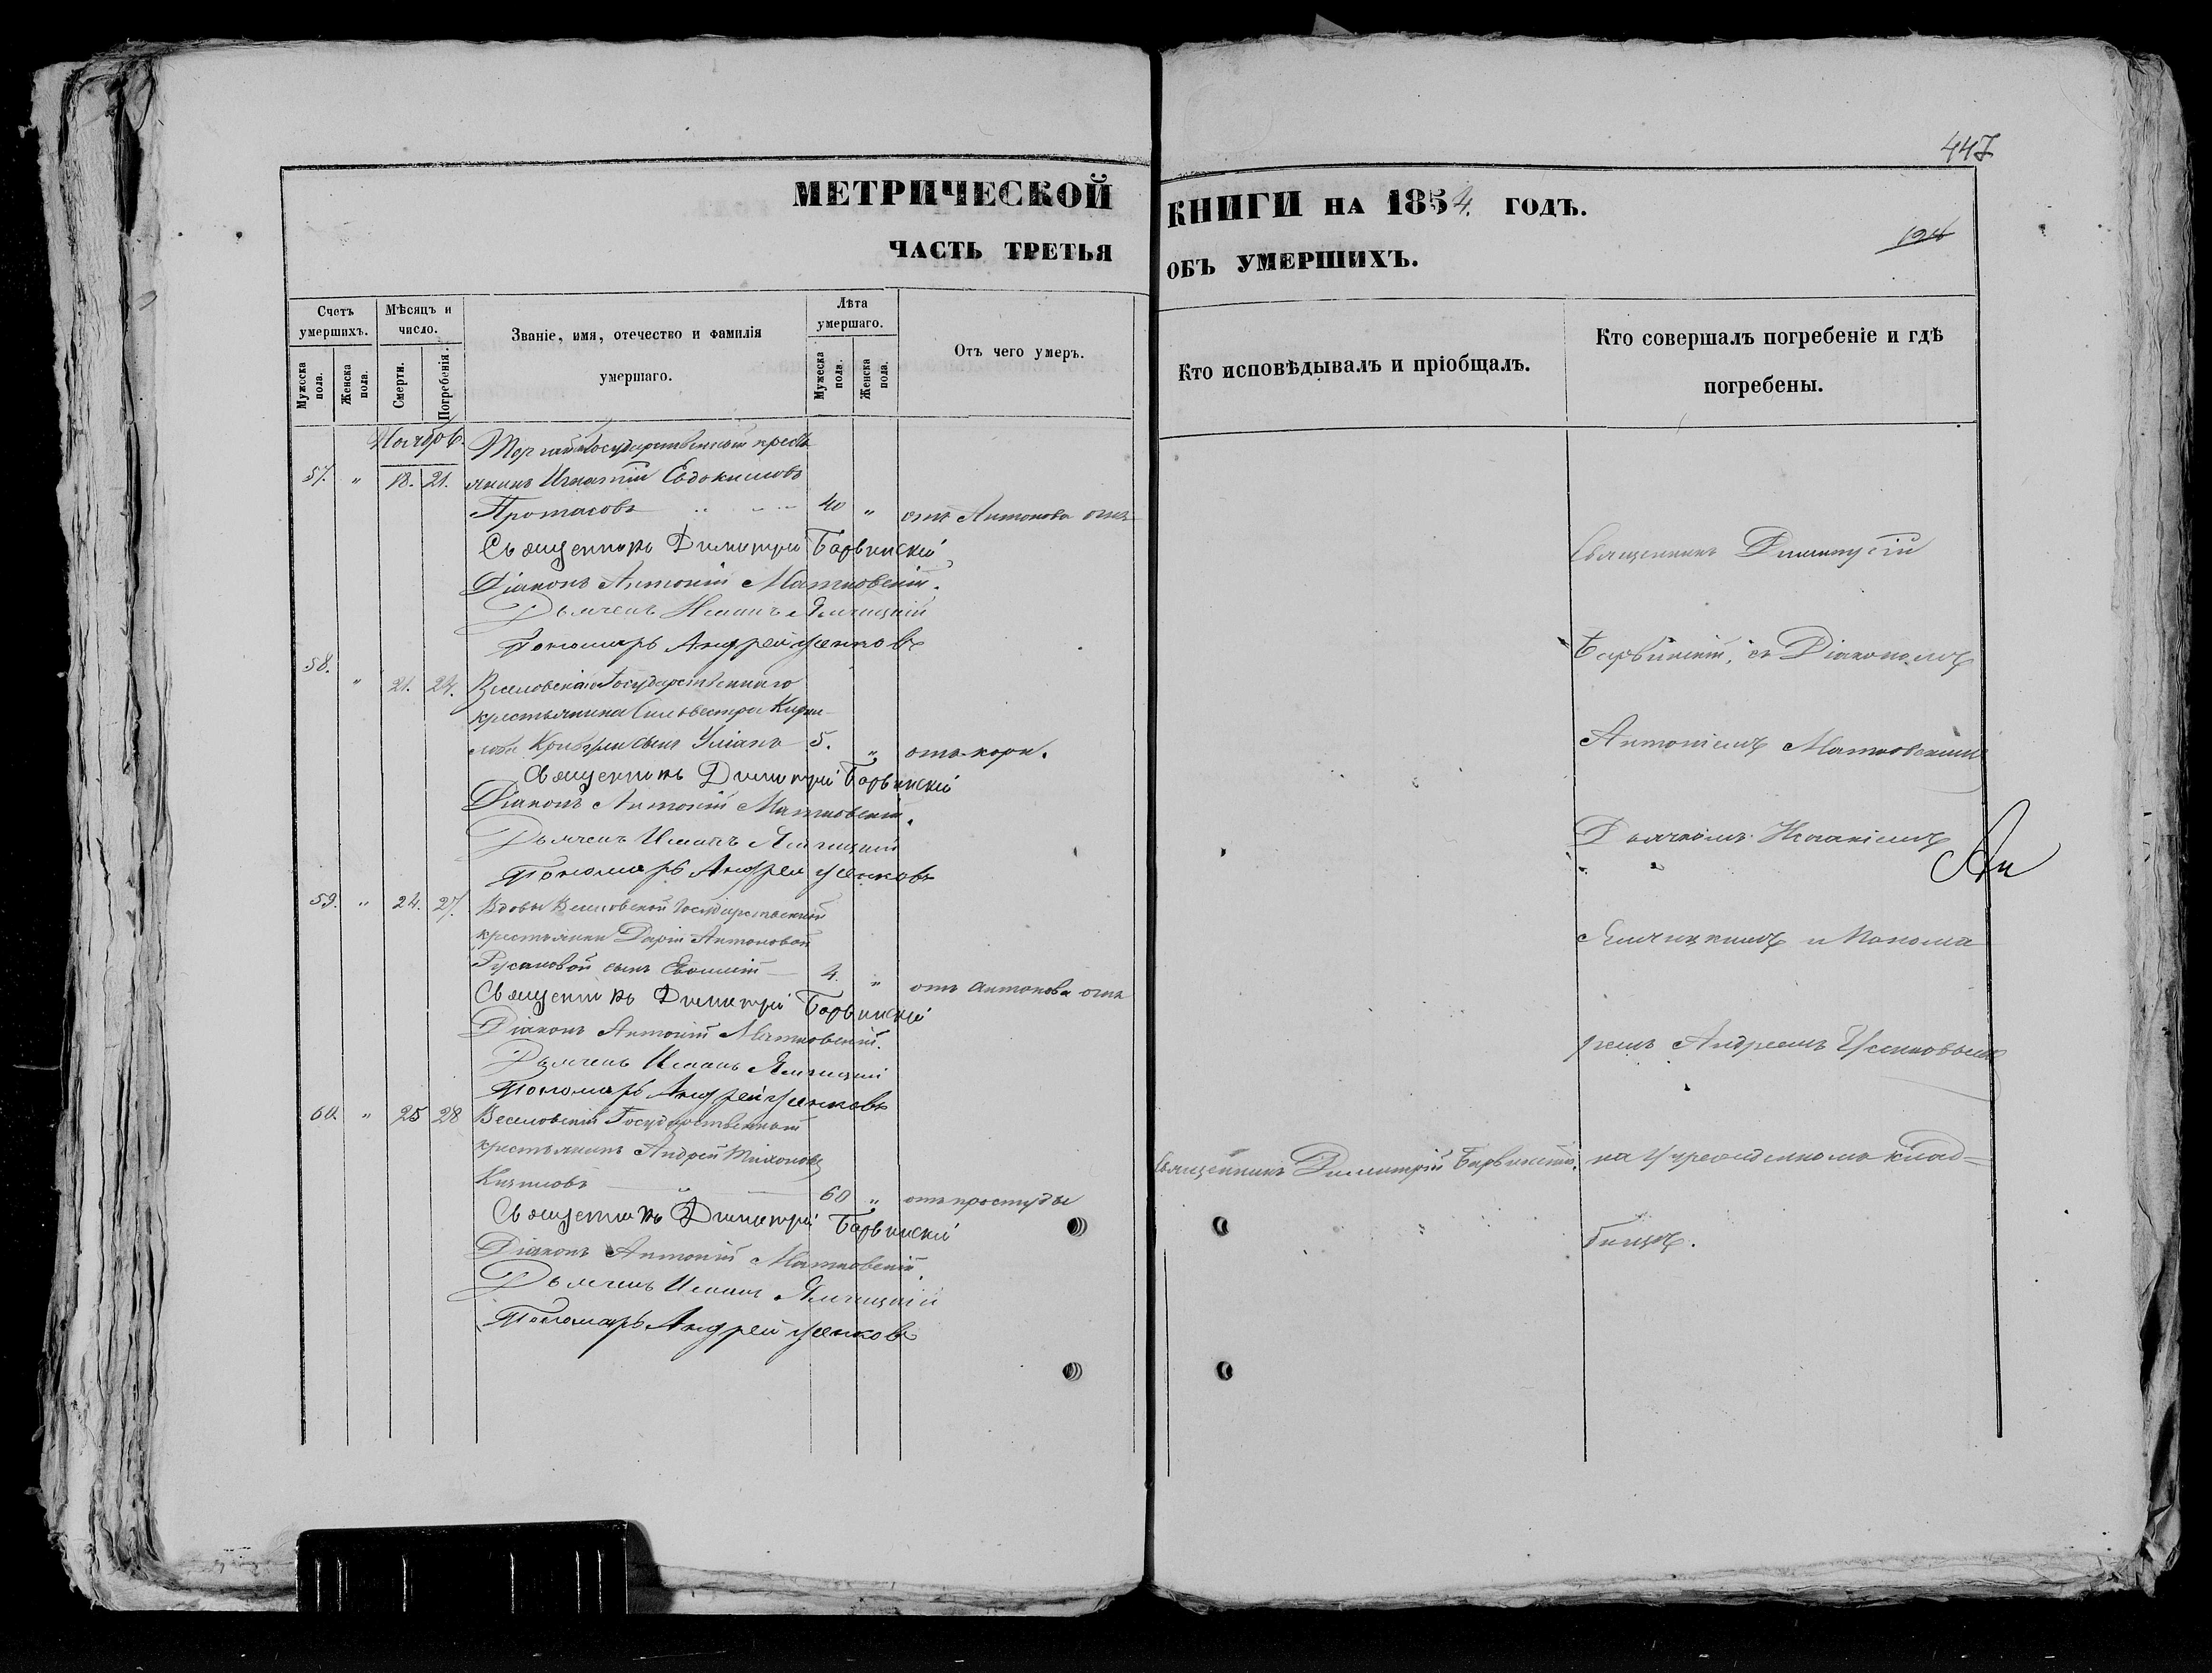 447
МЕТРИЧЕСКОЙ
КНИГИ НА 1854. ГОДЪ.
194
ЧАСТЬ ТРЕТЬЯ
ОБЪ УМЕРШИХЪ.
Счетъ умершихъ.
Мѣсяцъ и число.
Званіе, имя, отечество и фамилія
умершаго.
Лѣта умершаго.
Отъ чего умеръ.
Мужеска пола.
Женска пола.
Смерти.
Погребенія.
Мужеска пола.
Женска пола.
Кто исповѣдывалъ и пріобщалъ.
Кто совершалъ погребеніе и гдѣ
погребены.
Ноябрь.
Государственный кресть
57. " 18. 21. янинъ Игнатій Евдокимовъ
Протасовъ 40 " отъ Антонова огня
Священникъ Димитрій Барвинскій
Діаконъ Антоній Матковскій.
Дьячекъ
Пономарь Андрей Усенковъ
58. " 21. 24. Веселовскаго Государственнаго
крестьянина Сильвестра Кирил-
лова сынъ Уліанъ 5. " отъ кори.
Священникъ Димитрій Барвинскій
Діаконъ Антоній Матковскій.
Дьячекъ
Пономарь Андрей Усенковъ
59. " 24. 27. Вдовы Веселовской Государственной
крестьянки Даріи Антоновой
Русановой сынъ 4. " отъ антонова огня
Священникъ Димитрій Барвинскій
Діаконъ Антоній Матковскій.
Дьячекъ
Пономарь Андрей Усенковъ
60. " 25 28 Веселовскій Государственный
крестьянинъ Андрей Тихоновъ
Кизиловъ 60 " отъ простуды
Священникъ Димитрій Барвинскій
Діаконъ Антоній Матковскій.
Дьячекъ
Пономарь Андрей Усенковъ
Священникъ Димитрій Барвинскій.
Священникъ Димитрій
Барвинскій, съ Діакономъ
Антоніемъ Матковскимъ
Дьячкомъ
и Понома
ремъ Андреемъ Усенковымъ
на Учрежденномъ клад-
бищѣ.